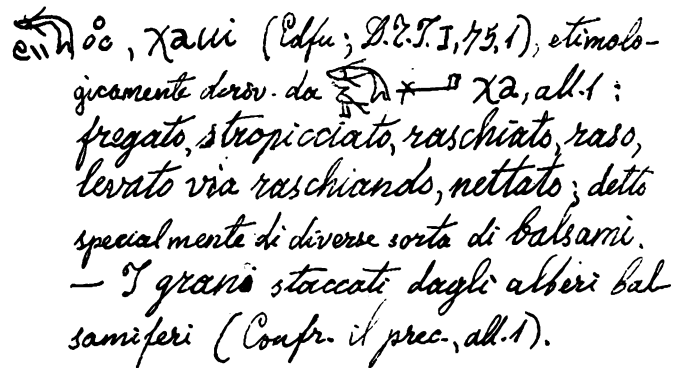 , χaui (Edfu; D.T.T. I, 75, 1), etimolo-
gicamente deriv. da χa, all. 1:
fregato, stropicciato, raschiato, raso,
levato via raschiando, nettato; detto
specialmente di diverse sorta di balsami.
— I grani staccati dagli alberi bal
samiferi (Confr. il prec., all. 1).